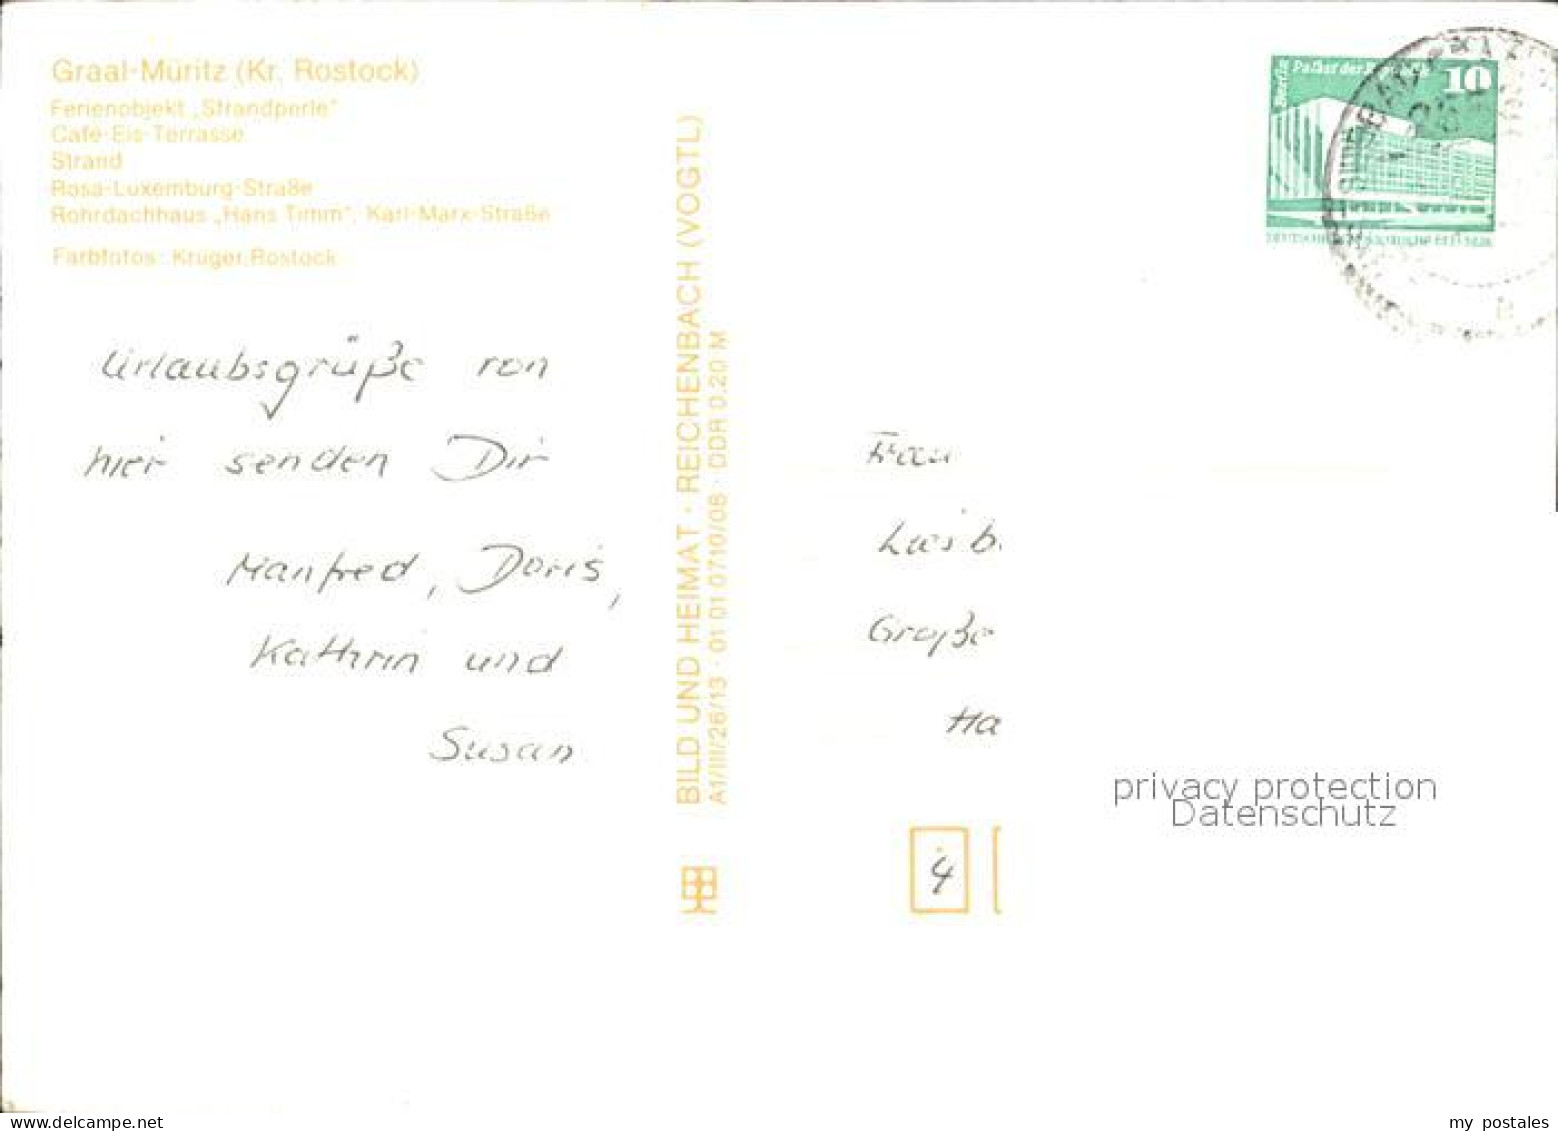 Graal-Müritz (Kr. Rostock)
Ferienobjekt „Strandperle"
Café-Eis-Terrasse
Strand
Rosa-Luxemburg-Straße
Rohrdachhaus „Hans Timm", Karl-Marx-Straße
Farbfotos: Krüger, Rostock
Urlaubsgrüße von
hier senden Dir
Manfred, Doris,
Kathrin und
Susan
BILD UND HEIMAT · REICHENBACH (VOGTL)
A1/III/26/13 · 01 01 0710/08 · DDR 0,20 M
Berlin Palast der Republik 10
Frau
Große
Ha
4
privacy protection
Datenschutz
www.delcampe.net
my_postales